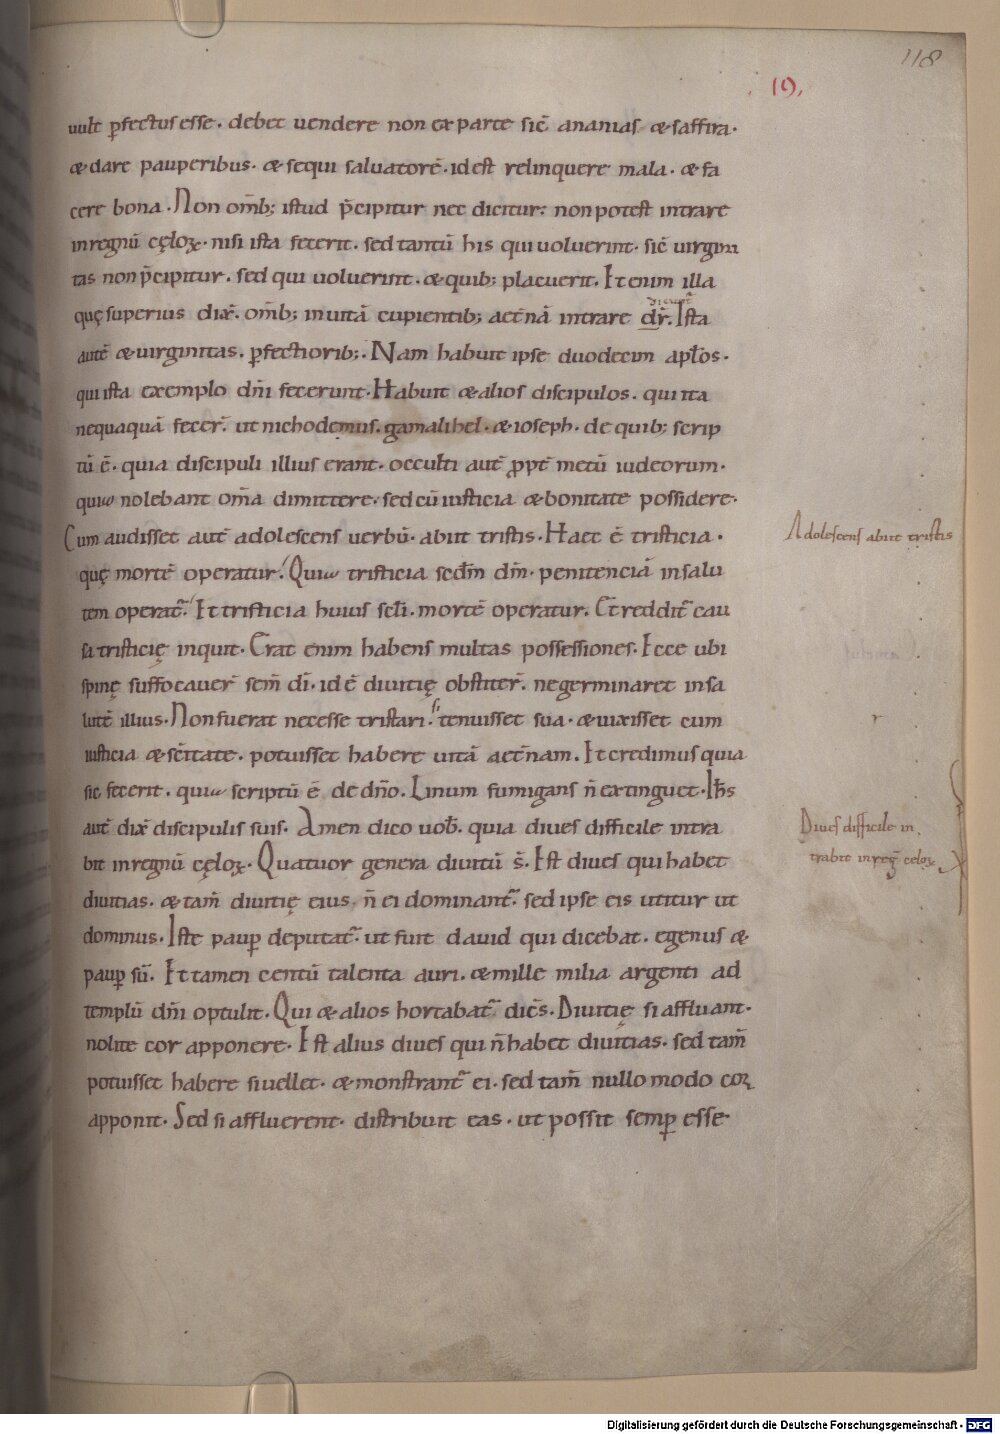 118
19.
uult p̄fectus esse. debet uendere non ex parte sic̄ ananias & saffira.
& dare pauperibus. & sequi saluatorē. id est relinquere mala. & fa
cere bona. Non om̄b; istud p̄cipitur nec dicitur: non potest intrare
in regnū cęloꝝ. nisi ista fecerit. sed tantū his qui uoluerint. sic̄ uirgini
tas non p̄cipitur. sed qui uoluerint. & quib; placuerit. Et enim illa
quę superius dix̄. om̄b; in uitā cupientib; aet̄nā intrare dr̄. Ista
autē & uirginitas. p̄fectiorib;. Nam habuit ipse duodecim apłos.
qui ista exemplo dn̄i fecerunt. Habuit & alios discipulos. qui ita
nequaquā fecer̄. ut nichodemus. gamalihel. & ioseph. de quib; scrip
tū ē. quia discipuli illius erant. occulti aut̄ ꝓpt̄ metū iudeorum.
quia nolebant om̄a dimittere. sed cū iusticia & bonitate possidere.
Cum audisset aut̄ adolescens uerbū. abiit tristis. Haec ē tristicia.
Adolescens abiit tristis
quę mortē operatur. Quia tristicia scd̄m dm̄. penitenciā in salu
tem operat̄. Et tristicia huius scłi. mortē operatur. Et reddit̄ cau
sa tristicię inquit. Erat enim habens multas possessiones. Ecce ubi
spinę suffocauer̄ sem̄ dī. id ē diuitię obstiter̄. ne germinaret in sa
lutē illius. Non fuerat necesse tristari. si tenuisset sua. & uixisset cum
iusticia & sc̄itate. potuisset habere uitā aet̄nam. Et credimus quia
sic fecerit. quia scriptū ē de dn̄o. Linum fumigans n̄ extinguet. Ih̄s
aut̄ dix̄ discipulis suis. Amen dico uob̄. quia diues difficile intra
Diues difficile in
bit in regnū cęloꝝ. Quatuor genera diuitū s̄. Est diues qui habet
trabit in reḡ celoꝝ
diuitias. & tam̄ diuitię eius n̄ ei dominant̄. sed ipse eis utitur ut
dominus. Iste paup̄ deputat̄. ut fuit dauid qui dicebat. egenus &
paup̄ sū. Et tamen centū talenta auri. & mille milia argenti ad
templū dn̄i optulit. Qui & alios hortabat̄ dic̄s. Diuitię si affluant.
nolite cor apponere. Est alius diues qui n̄ habet diuitias. sed tam̄
potuisset habere si uellet. & monstrant̄ ei. sed tam̄ nullo modo cor
apponit. Sed si affluerent. distribuit eas. ut possit semp̄ esse.
Digitalisierung gefördert durch die Deutsche Forschungsgemeinschaft - DFG